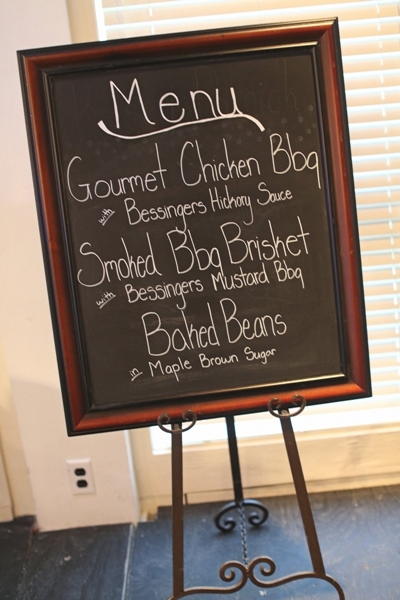 Menu
Gourmet Chicken Bbq
with Bessingers Hickory Sauce
Smoked Bbq Brisket
with Bessingers Mustard Bbq
Baked Beans
in Maple Brown Sugar